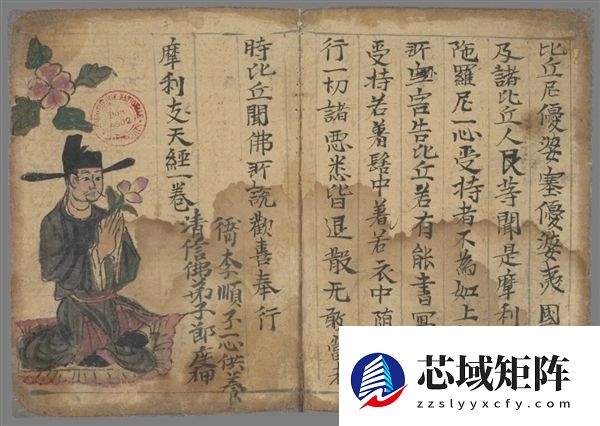 比丘尼優婆塞優婆夷國
及諸比丘人民等聞是摩利
陁羅尼一心受持者不為如上
所害告比丘若有能書寫
受持若著髻中著若衣中随
行一切諸惡悉皆退散无敢當者
時比丘聞佛所說歡喜奉行
摩利支天經一卷
清信佛弟子節度押
衙李順子一心供養
芯域矩阵
zzslyyxcfy.com